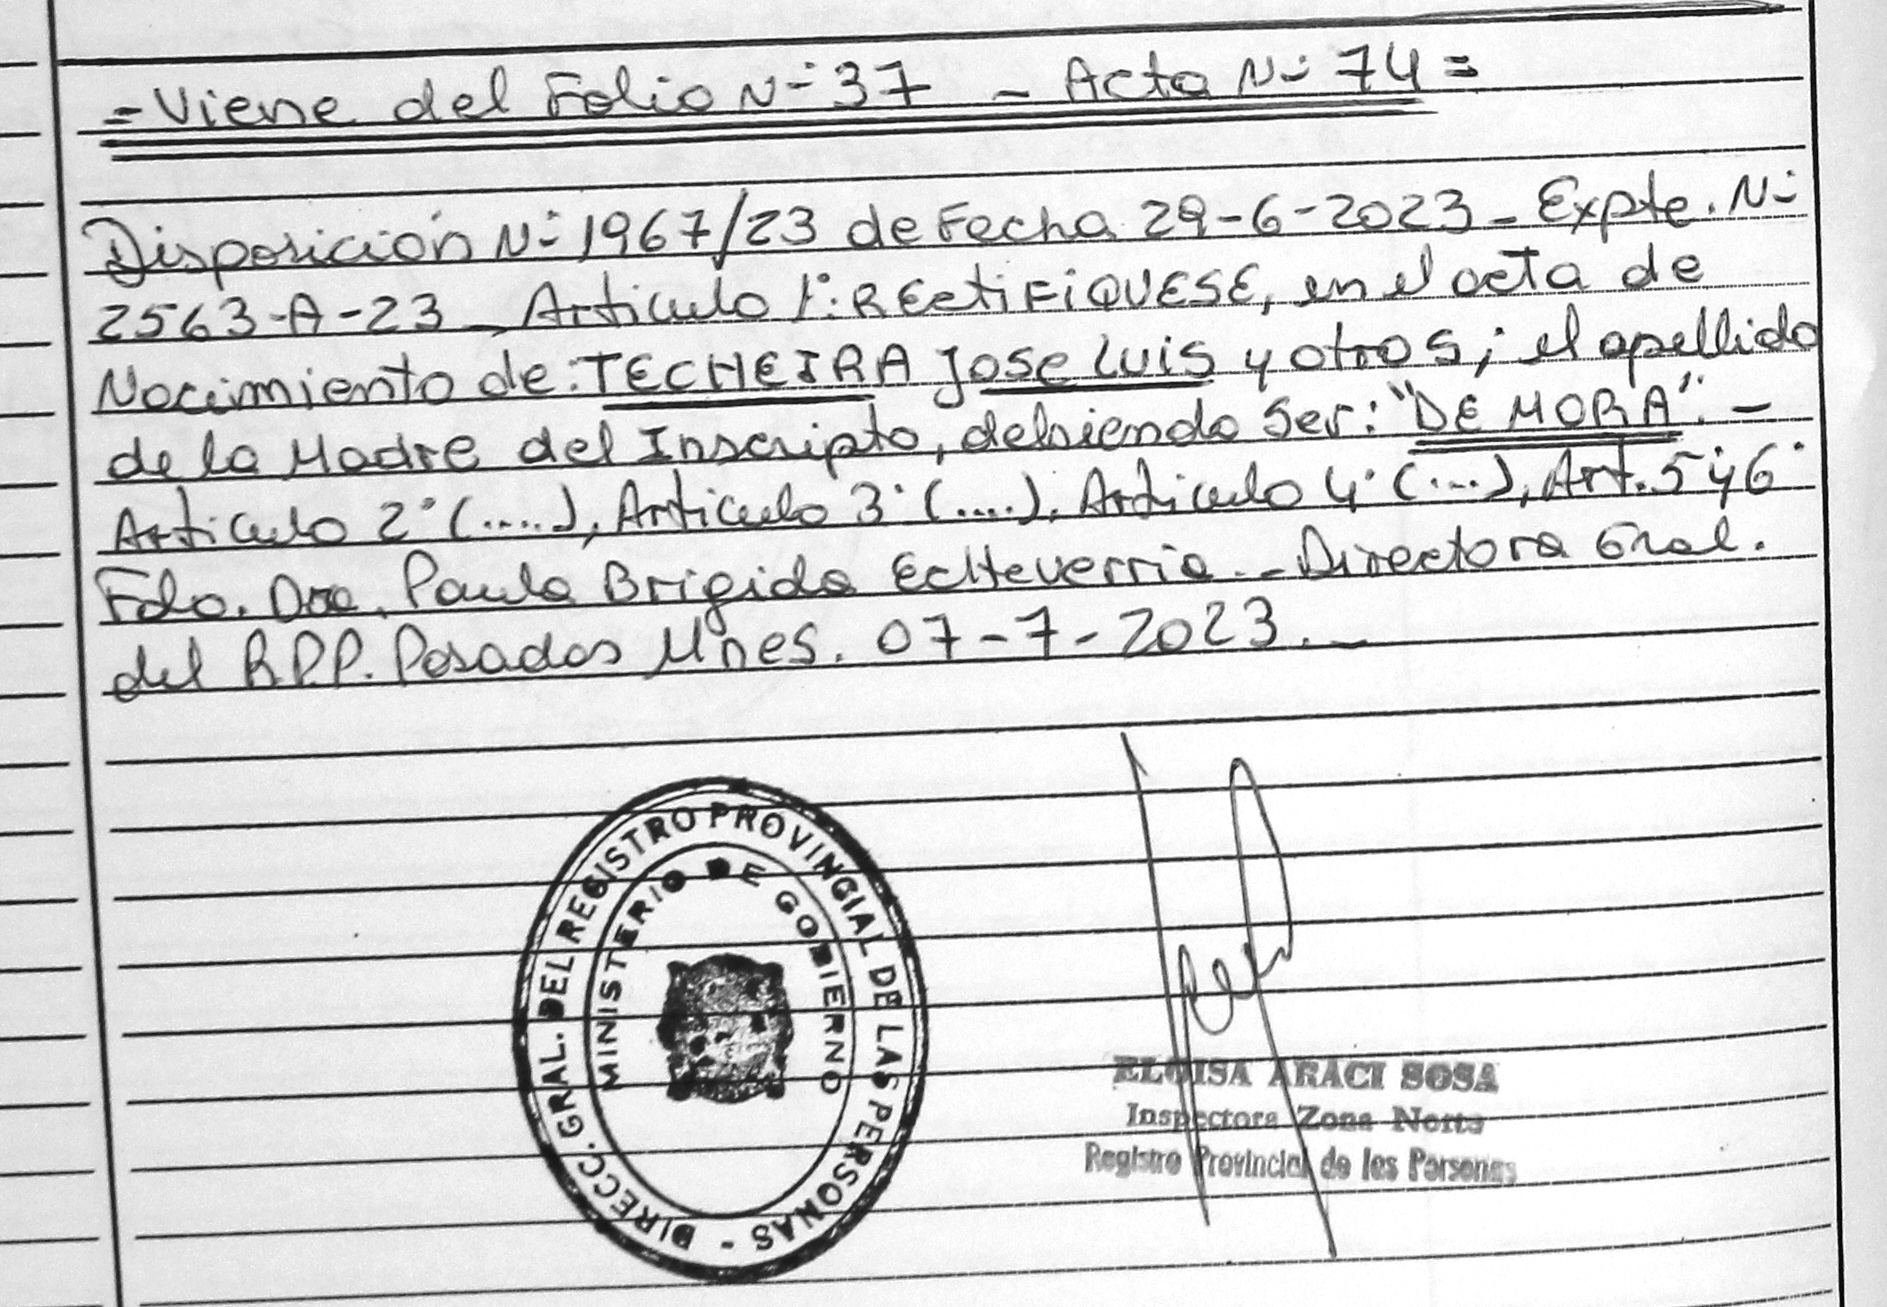 = Viene del Folio N° 37 - Acta N° 74 =
Disposición N° 1967/23 de Fecha 29-6-2023 - Expte. N°
2563-A-23 - Articulo 1°: RECTIFIQUESE, en el acta de
Nacimiento de: TECHEIRA Jose Luis y otros; el apellido
de la Madre del Inscripto, debiendo Ser: "DE MORA". -
Articulo 2° (....), Articulo 3° (....), Articulo 4° (...), Art. 5 y 6°
Fdo. Dra. Paula Brigida Echeverria. - Directora Gral.
del R.P.P. Posadas Mnes. 07-7-2023. -
DIRECC. GRAL. DEL REGISTRO PROVINCIAL DE LAS PERSONAS -
MINISTERIO DE GOBIERNO
ELOISA ARACI SOSA
Inspectora Zona Norte
Registro Provincial de las Personas